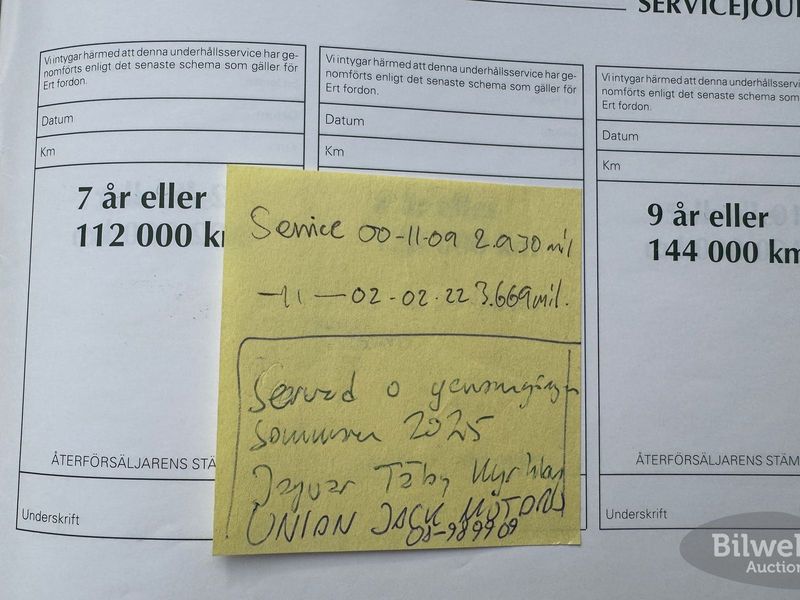 SERVICEJOU
Vi intygar härmed att denna underhållsservice har ge-
nomförts enligt det senaste schema som gäller för
Ert fordon.
Datum
Km
7 år eller
112 000 km
ÅTERFÖRSÄLJARENS STÄ
Underskrift
Vi intygar härmed att denna underhållsservice har ge-
nomförts enligt det senaste schema som gäller för
Ert fordon.
Datum
Km
Vi intygar härmed att denna underhållsservi
nomförts enligt det senaste schema som g
Ert fordon.
Datum
Km
9 år eller
144 000 km
ÅTERFÖRSÄLJARENS STÄM
Underskrift
Service 00-11-09 2.930 mil
—11— 02-02-22 3.669 mil.
Servad o
sommaren 2025
Jaguar Täby Kyrkby
UNION JACK MOTORS
08-989909
Bilwe
Auction